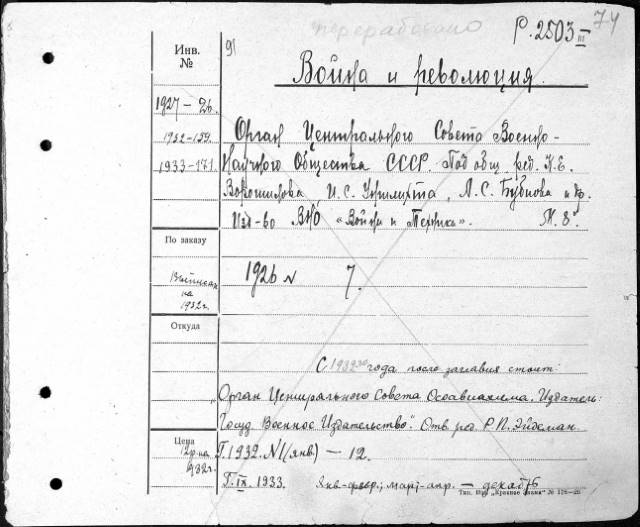 переработано
Р.2503 III
74
Инв.
№
91
Война и революция.
1927 - 26.
1932 - 159.
1933 - 171.
Орган Центрального Совета Военно-
Научного Общества СССР. Под общ. ред. К.Е.
Ворошилова, И.С. Уншлихта, А.С. Бубнова и др.
Изд-во ВНО «Война и Техника». М. 8°.
По заказу
Выписан
на
1932г.
1926 №
7.
Откуда
С 1932 года после заглавия стоит:
„Орган Центрального Совета Осоавиахима. Издатель:
Госуд. Военное Издательство". Отв. ред. Р.П. Эйдеман.
Цена
12р. на
1932г.
Г. 1932. №1 (янв.) — 12.
Г. IX. 1933. янв-февр.; март-апр. — декабрь
Тип. Изд. „Красное знамя"